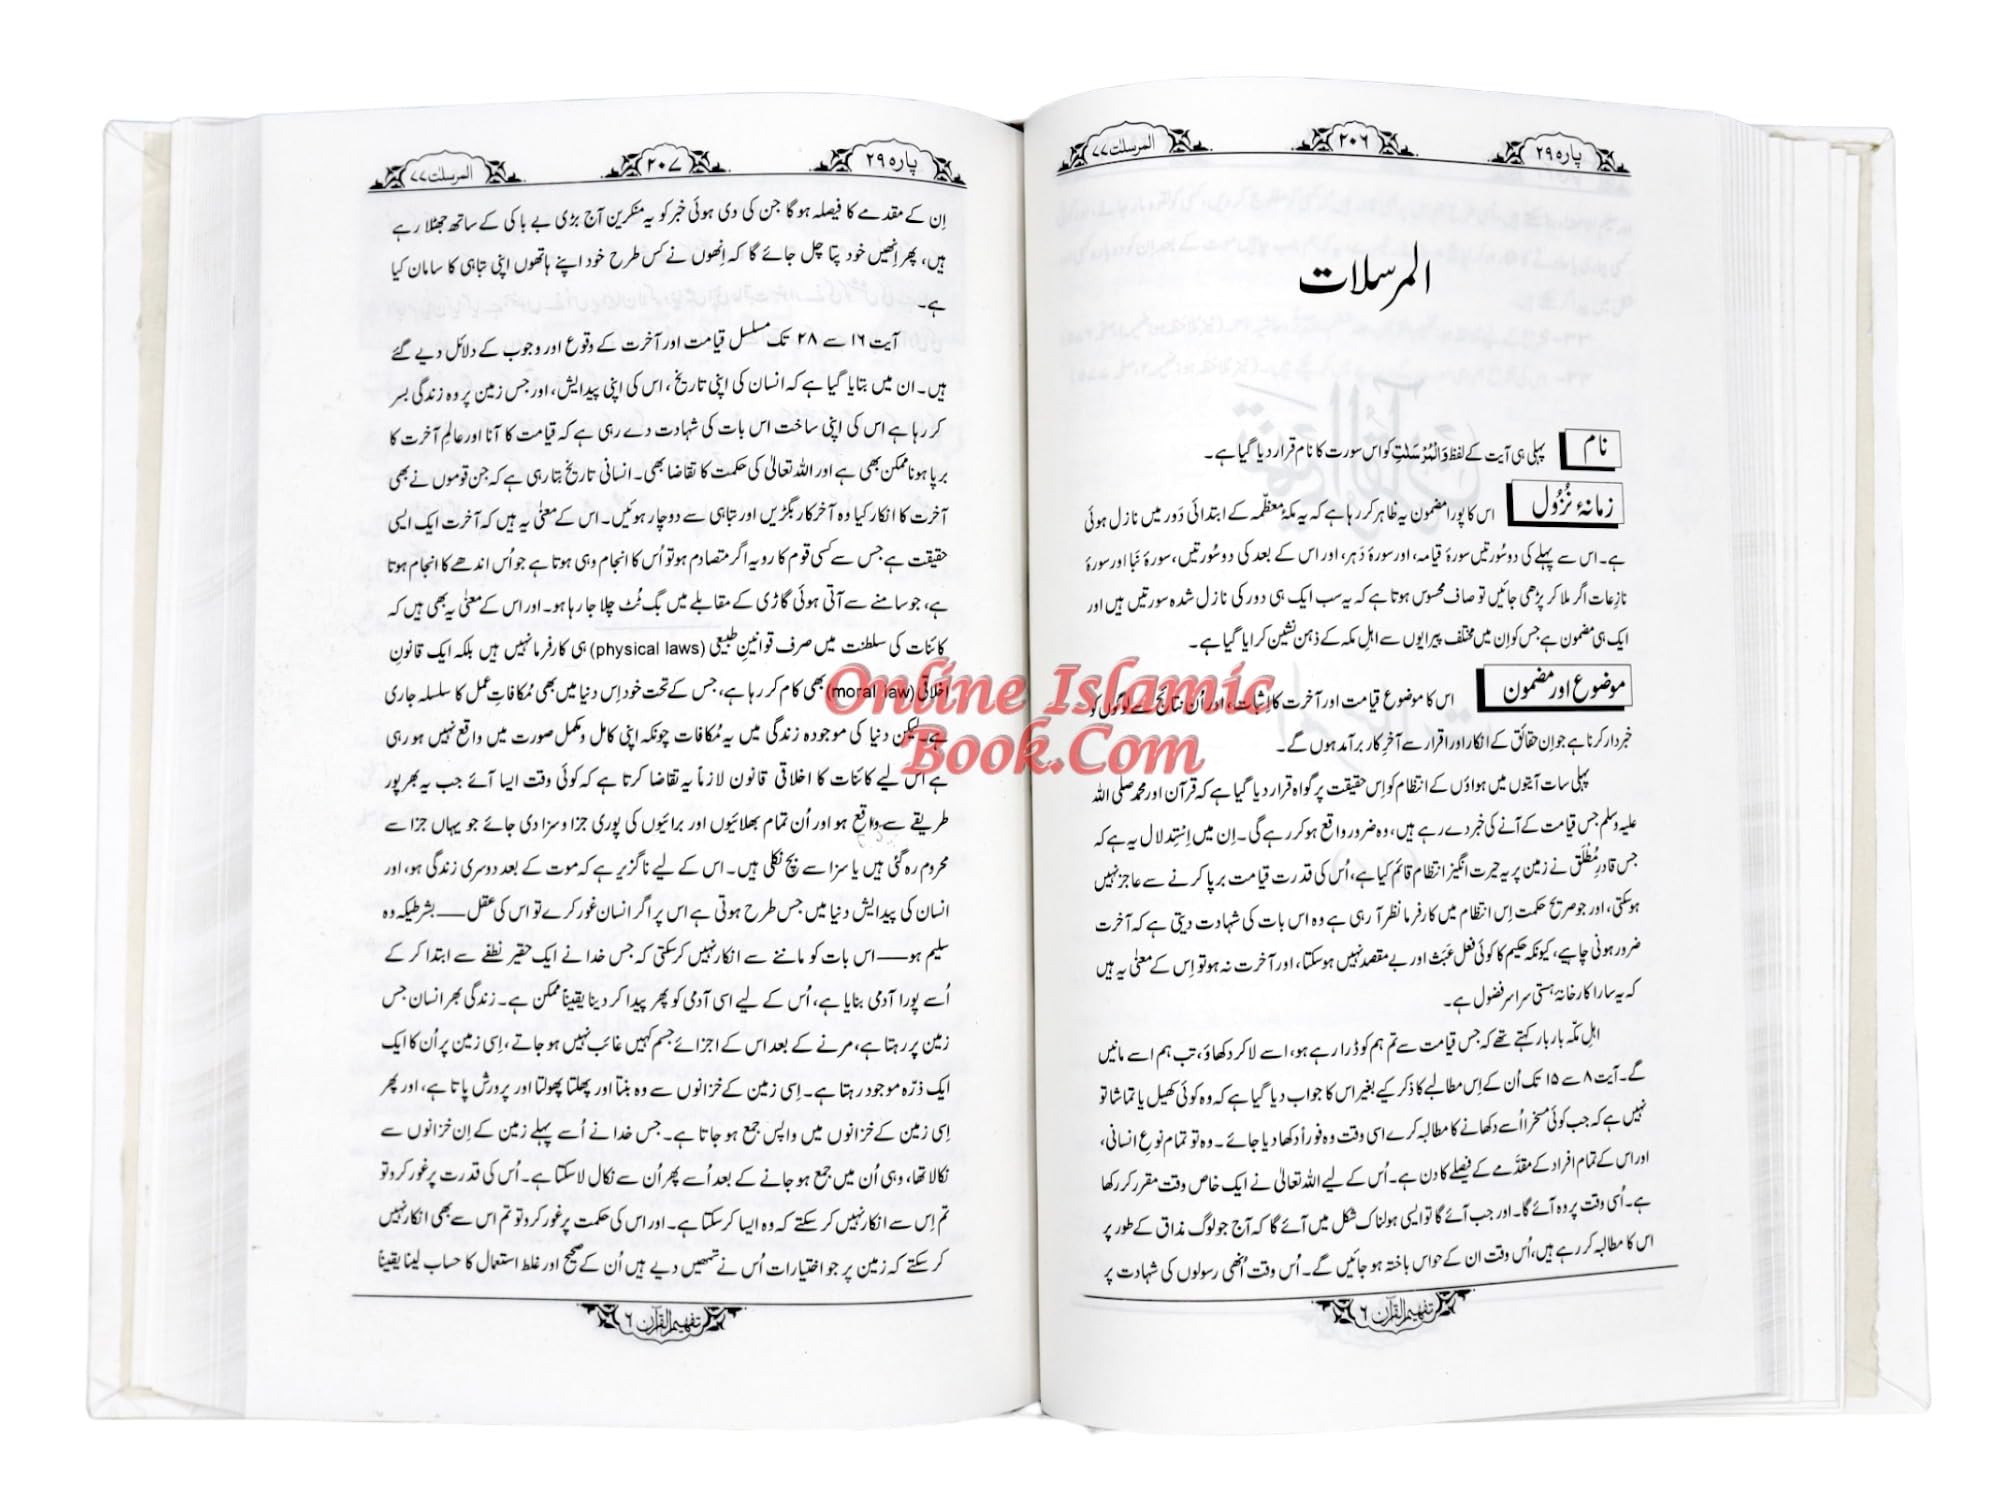 پارہ ۲۹
۲۰۶
المرسلت ۷۷
المرسلات
نام
پہلی ہی آیت کے لفظ وَالْمُرْسَلٰتِ کو اس سورت کا نام قرار دیا گیا ہے۔
زمانۂ نُزُول
اس کا پورا مضمون یہ ظاہر کر رہا ہے کہ یہ مکۂ معظّمہ کے ابتدائی دَور میں نازل ہوئی
ہے۔ اس سے پہلے کی دو سُورتیں سورۂ قیامہ، اور سورۂ دَہر، اور اس کے بعد کی دو سُورتیں، سورۂ نَبا اور سورۂ
نازِعات اگر ملا کر پڑھی جائیں تو صاف محسوس ہوتا ہے کہ یہ سب ایک ہی دور کی نازل شدہ سورتیں ہیں اور
ایک ہی مضمون ہے جس کو اِن میں مختلف پیرایوں سے اہلِ مکہ کے ذہن نشین کرایا گیا ہے۔
موضوع اور مضمون
اس کا موضوع قیامت اور آخرت کا اِثبات، اور اُن نتائج سے لوگوں کو
خبردار کرنا ہے جو اِن حقائق کے انکار اور اقرار سے آخرِ کار برآمد ہوں گے۔
پہلی سات آیتوں میں ہواؤں کے انتظام کو اِس حقیقت پر گواہ قرار دیا گیا ہے کہ قرآن اور محمد صلی اللہ
علیہ وسلم جس قیامت کے آنے کی خبر دے رہے ہیں، وہ ضرور واقع ہو کر رہے گی۔ اِن میں اِستِدلال یہ ہے کہ
جس قادرِ مُطْلَق نے زمین پر یہ حیرت انگیز انتظام قائم کیا ہے، اُس کی قدرت قیامت برپا کرنے سے عاجز نہیں
ہو سکتی، اور جو صریح حکمت اِس انتظام میں کارفرما نظر آ رہی ہے وہ اس بات کی شہادت دیتی ہے کہ آخرت
ضرور ہونی چاہیے، کیونکہ حکیم کا کوئی فعل عَبَث اور بے مقصد نہیں ہو سکتا، اور آخرت نہ ہو تو اِس کے معنیٰ یہ ہیں
کہ یہ سارا کارخانۂ ہستی سراسر فضول ہے۔
اہلِ مکّہ بار بار کہتے تھے کہ جس قیامت سے تم ہم کو ڈرا رہے ہو، اسے لا کر دکھاؤ، تب ہم اسے مانیں
گے۔ آیت ۸ سے ۱۵ تک اُن کے اِس مطالبے کا ذکر کیے بغیر اس کا جواب دیا گیا ہے کہ وہ کوئی کھیل یا تماشا تو
نہیں ہے کہ جب کوئی مسخرا اُسے دکھانے کا مطالبہ کرے اسی وقت وہ فوراً دکھا دیا جائے۔ وہ تو تمام نوعِ انسانی،
اور اس کے تمام افراد کے مقدّمے کے فیصلے کا دن ہے۔ اُس کے لیے اللہ تعالیٰ نے ایک خاص وقت مقرر کر رکھا
ہے۔ اُسی وقت پر وہ آئے گا۔ اور جب آئے گا تو ایسی ہولناک شکل میں آئے گا کہ آج جو لوگ مذاق کے طور پر
اس کا مطالبہ کر رہے ہیں، اُس وقت ان کے حواس باختہ ہو جائیں گے۔ اُس وقت اُنھی رسولوں کی شہادت پر
تفہیم القرآن ۶
پارہ ۲۹
۲۰۷
المرسلت ۷۷
اِن کے مقدمے کا فیصلہ ہو گا جن کی دی ہوئی خبر کو یہ منکرین آج بڑی بے باکی کے ساتھ جھٹلا رہے
ہیں، پھر اِنھیں خود پتا چل جائے گا کہ اِنھوں نے کس طرح خود اپنے ہاتھوں اپنی تباہی کا سامان کیا
ہے۔
آیت ۱۶ سے ۲۸ تک مسلسل قیامت اور آخرت کے وقوع اور وجوب کے دلائل دیے گئے
ہیں۔ ان میں بتایا گیا ہے کہ انسان کی اپنی تاریخ، اس کی اپنی پیدایش، اور جس زمین پر وہ زندگی بسر
کر رہا ہے اس کی اپنی ساخت اس بات کی شہادت دے رہی ہے کہ قیامت کا آنا اور عالمِ آخرت کا
برپا ہونا ممکن بھی ہے اور اللہ تعالیٰ کی حکمت کا تقاضا بھی۔ انسانی تاریخ بتا رہی ہے کہ جن قوموں نے بھی
آخرت کا انکار کیا وہ آخرِ کار بگڑیں اور تباہی سے دوچار ہوئیں۔ اس کے معنیٰ یہ ہیں کہ آخرت ایک ایسی
حقیقت ہے جس سے کسی قوم کا رویہ اگر متصادم ہو تو اُس کا انجام وہی ہوتا ہے جو اُس اندھے کا انجام ہوتا
ہے، جو سامنے سے آتی ہوئی گاڑی کے مقابلے میں بگ ٹُٹ چلا جا رہا ہو۔ اور اس کے معنیٰ یہ بھی ہیں کہ
کائنات کی سلطنت میں صرف قوانینِ طبیعی (physical laws) ہی کارفرما نہیں ہیں بلکہ ایک قانونِ
اخلاقی (moral law) بھی کام کر رہا ہے، جس کے تحت خود اِس دنیا میں بھی مُکافاتِ عمل کا سلسلہ جاری
ہے۔ لیکن دنیا کی موجودہ زندگی میں یہ مُکافات چونکہ اپنی کامل و مکمل صورت میں واقع نہیں ہو رہی
ہے اس لیے کائنات کا اخلاقی قانون لازماً یہ تقاضا کرتا ہے کہ کوئی وقت ایسا آئے جب یہ بھرپور
طریقے سے واقع ہو اور اُن تمام بھلائیوں اور برائیوں کی پوری جزا و سزا دی جائے جو یہاں جزا سے
محروم رہ گئی ہیں یا سزا سے بچ نکلی ہیں۔ اس کے لیے ناگزیر ہے کہ موت کے بعد دوسری زندگی ہو، اور
انسان کی پیدایش دنیا میں جس طرح ہوتی ہے اس پر اگر انسان غور کرے تو اس کی عقل —— بشرطیکہ وہ
سلیم ہو —— اس بات کو ماننے سے انکار نہیں کر سکتی کہ جس خدا نے ایک حقیر نطفے سے ابتدا کر کے
اُسے پورا آدمی بنایا ہے، اُس کے لیے اسی آدمی کو پھر پیدا کر دینا یقیناً ممکن ہے۔ زندگی بھر انسان جس
زمین پر رہتا ہے، مرنے کے بعد اس کے اجزائے جسم کہیں غائب نہیں ہو جاتے، اِسی زمین پر اُن کا ایک
ایک ذرّہ موجود رہتا ہے۔ اِسی زمین کے خزانوں سے وہ بنتا اور پھلتا پھولتا اور پرورش پاتا ہے، اور پھر
اِسی زمین کے خزانوں میں واپس جمع ہو جاتا ہے۔ جس خدا نے اُسے پہلے زمین کے اِن خزانوں سے
نکالا تھا، وہی اُن میں جمع ہو جانے کے بعد اُسے پھر اُن سے نکال لا سکتا ہے۔ اُس کی قدرت پر غور کرو تو
تم اِس سے انکار نہیں کر سکتے کہ وہ ایسا کر سکتا ہے۔ اور اس کی حکمت پر غور کرو تو تم اس سے بھی انکار نہیں
کر سکتے کہ زمین پر جو اختیارات اُس نے تمھیں دیے ہیں اُن کے صحیح اور غلط استعمال کا حساب لینا یقیناً
تفہیم القرآن ۶
Online Islamic
Book.Com